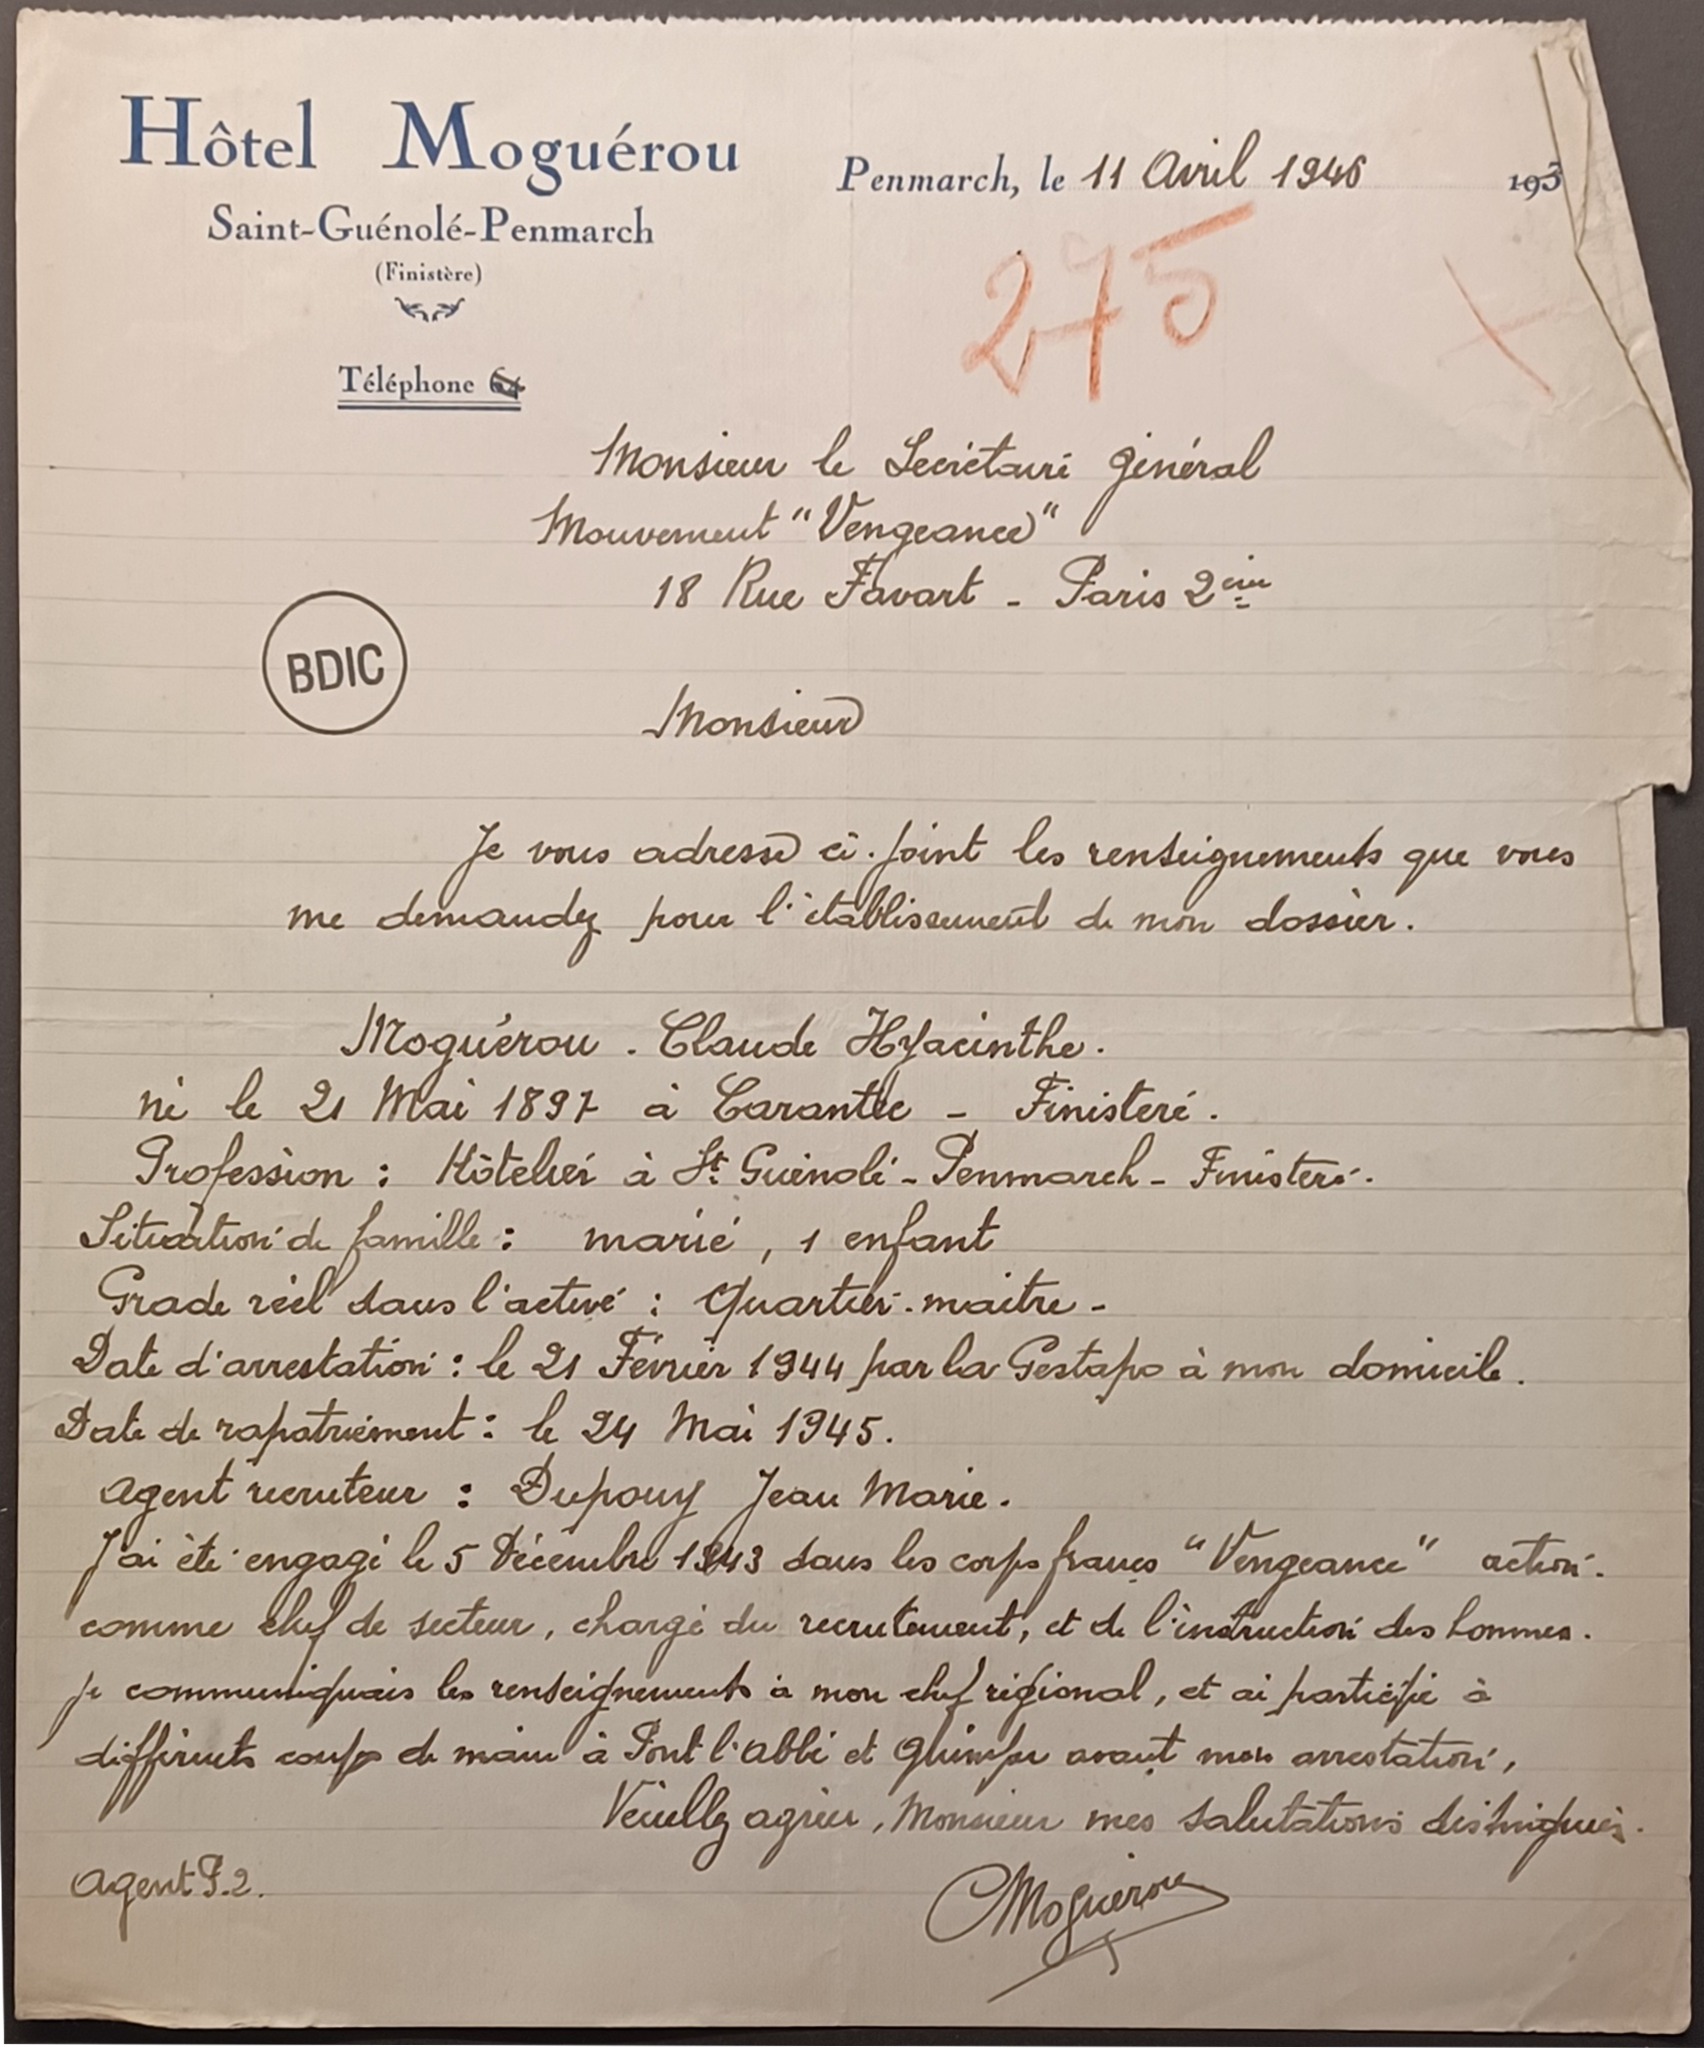 Hôtel Moguérou
Saint-Guénolé-Penmarch
(Finistère)
Téléphone 64
Penmarch, le 11 Avril 1946 193
275
Monsieur le Secrétaire général
Mouvement "Vengeance"
18 Rue Favart - Paris 2ème
BDIC
Monsieur
Je vous adresse ci-joint les renseignements que vous
me demandez pour l'établissement de mon dossier.
Moguérou . Claude Hyacinthe.
né le 21 Mai 1897 à Carantec - Finistère.
Profession : Hôtelier à St Guénolé - Penmarch - Finistère.
Situation de famille : marié, 1 enfant
Grade réel dans l'active : Quartier-maitre -
Date d'arrestation : le 21 Février 1944 par la Gestapo à mon domicile.
Date de rapatriement : le 24 Mai 1945.
Agent recruteur : Dupouy Jean Marie.
J'ai été engagé le 5 Décembre 1943 dans les corps francs "Vengeance" action.
comme chef de secteur, chargé du recrutement, et de l'instruction des hommes.
je communiquais les renseignements à mon chef régional, et ai participé à
différents coups de main à Pont l'abbé et Quimper avant mon arrestation,
Veuillez agréer, Monsieur mes salutations distinguées.
Agent P.2.
CMoguérou